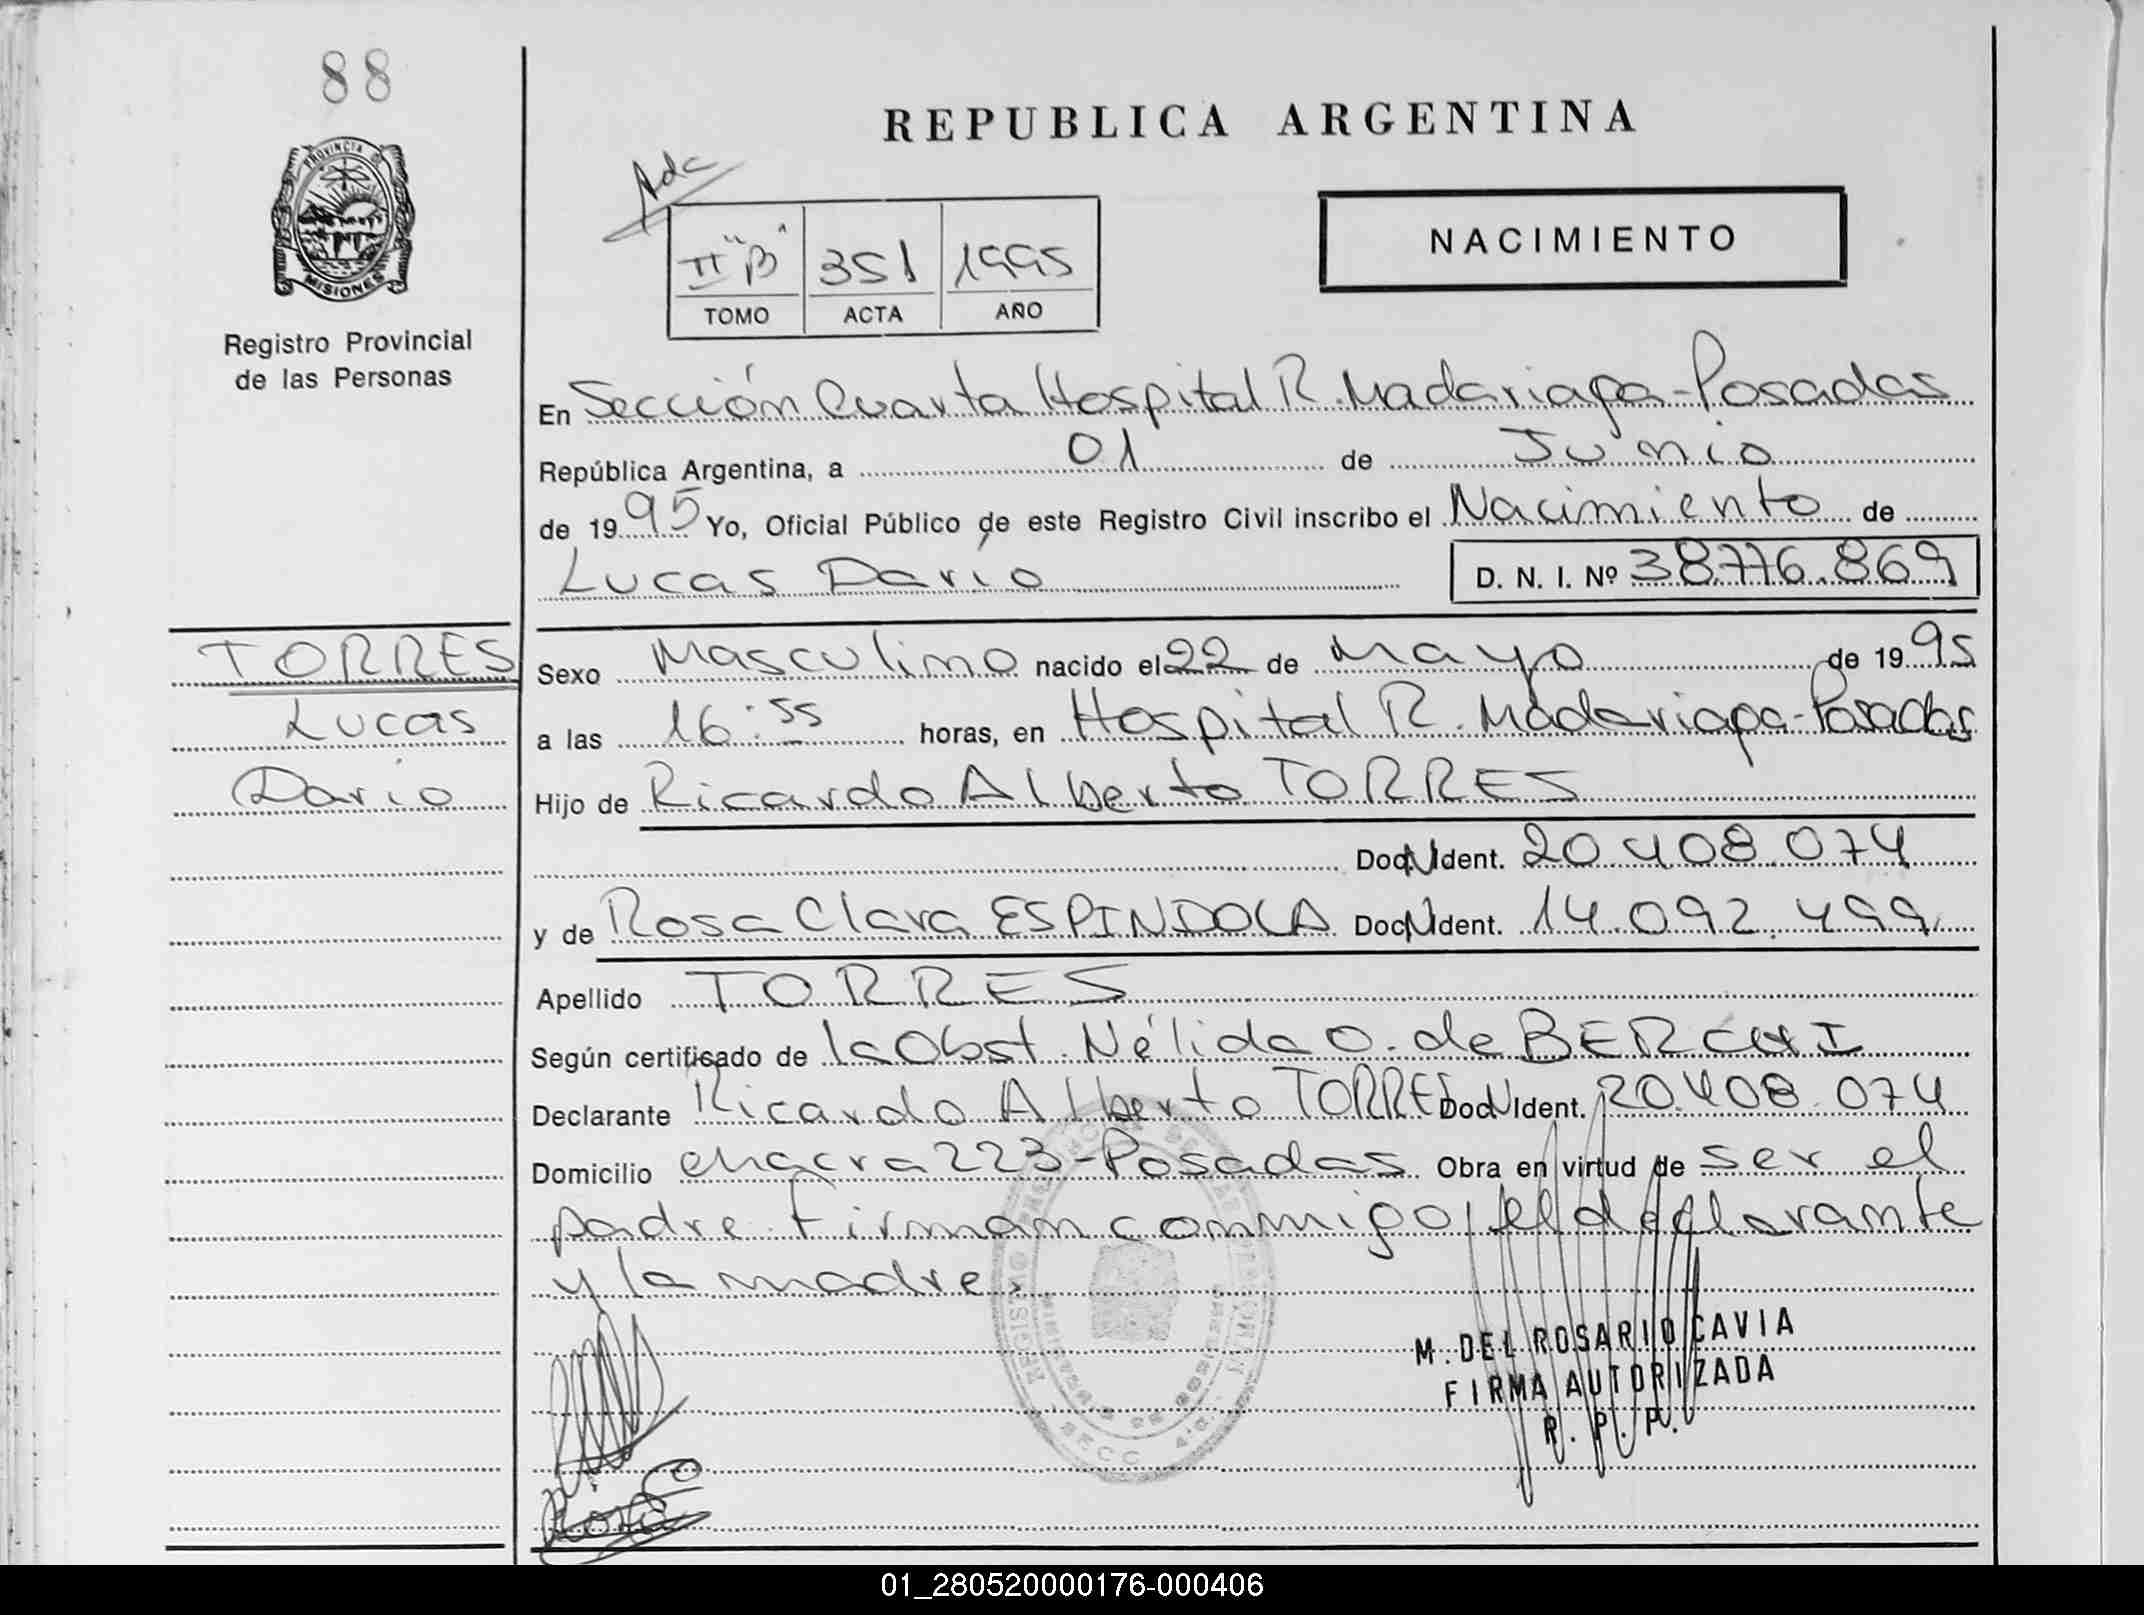 88
PROVINCIA DE
MISIONES
Registro Provincial
de las Personas
REPUBLICA ARGENTINA
Adc
II "B" 351 1995
TOMO ACTA AÑO
NACIMIENTO
En Sección Cuarta Hospital R. Madariaga - Posadas
República Argentina, a 01 de Junio
de 1995 Yo, Oficial Público de este Registro Civil inscribo el Nacimiento de
Lucas Darío D. N. I. Nº 38.776.869
TORRES
Lucas
Dario
Sexo Masculino nacido el 22 de Mayo de 1995
a las 16:55 horas, en Hospital R. Madariaga - Posadas
Hijo de Ricardo Alberto TORRES
Doc N Ident. 20.408.074
y de Rosa Clara ESPINDOLA Doc N Ident. 14.092.499
Apellido TORRES
Según certificado de la Obst. Nélida O. de
Declarante Ricardo Alberto TORRES Doc N Ident. 20.408.074
Domicilio chacra 223 - Posadas Obra en virtud de ser el
padre. Firman conmigo el declarante
y la madre.
M. DEL ROSARIO CAVIA
FIRMA AUTORIZADA
R. P. P.
SECC. 4ª
Rosa
01_280520000176-000406